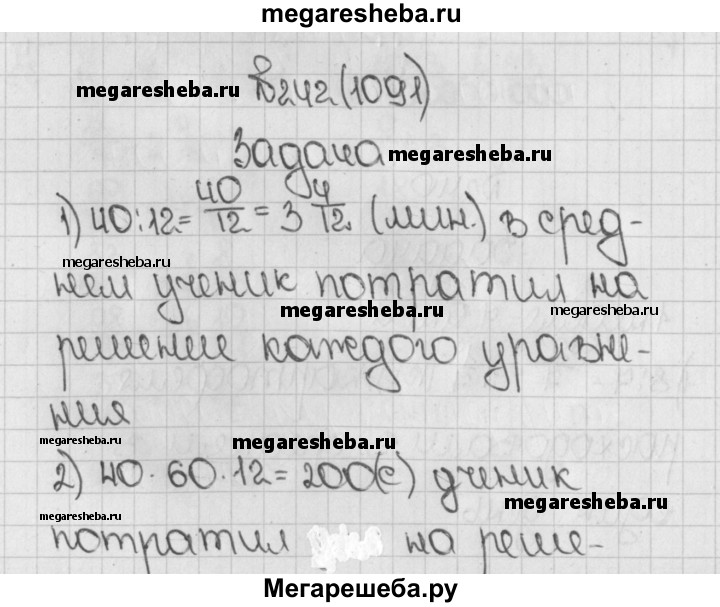 megaresheba.ru
megaresheba.ru №242(1091)
Задача megaresheba.ru
1) 40:12= 40/12 = 3 4/12 (мин.) в сред-
megaresheba.ru
нем ученик потратил на
megaresheba.ru megaresheba.ru
решение каждого уравне-
ния
megaresheba.ru megaresheba.ru
2) 40·60·12=200(с) ученик
megaresheba.ru
megaresheba.ru
потратил на реше-
Мегарешеба.ру